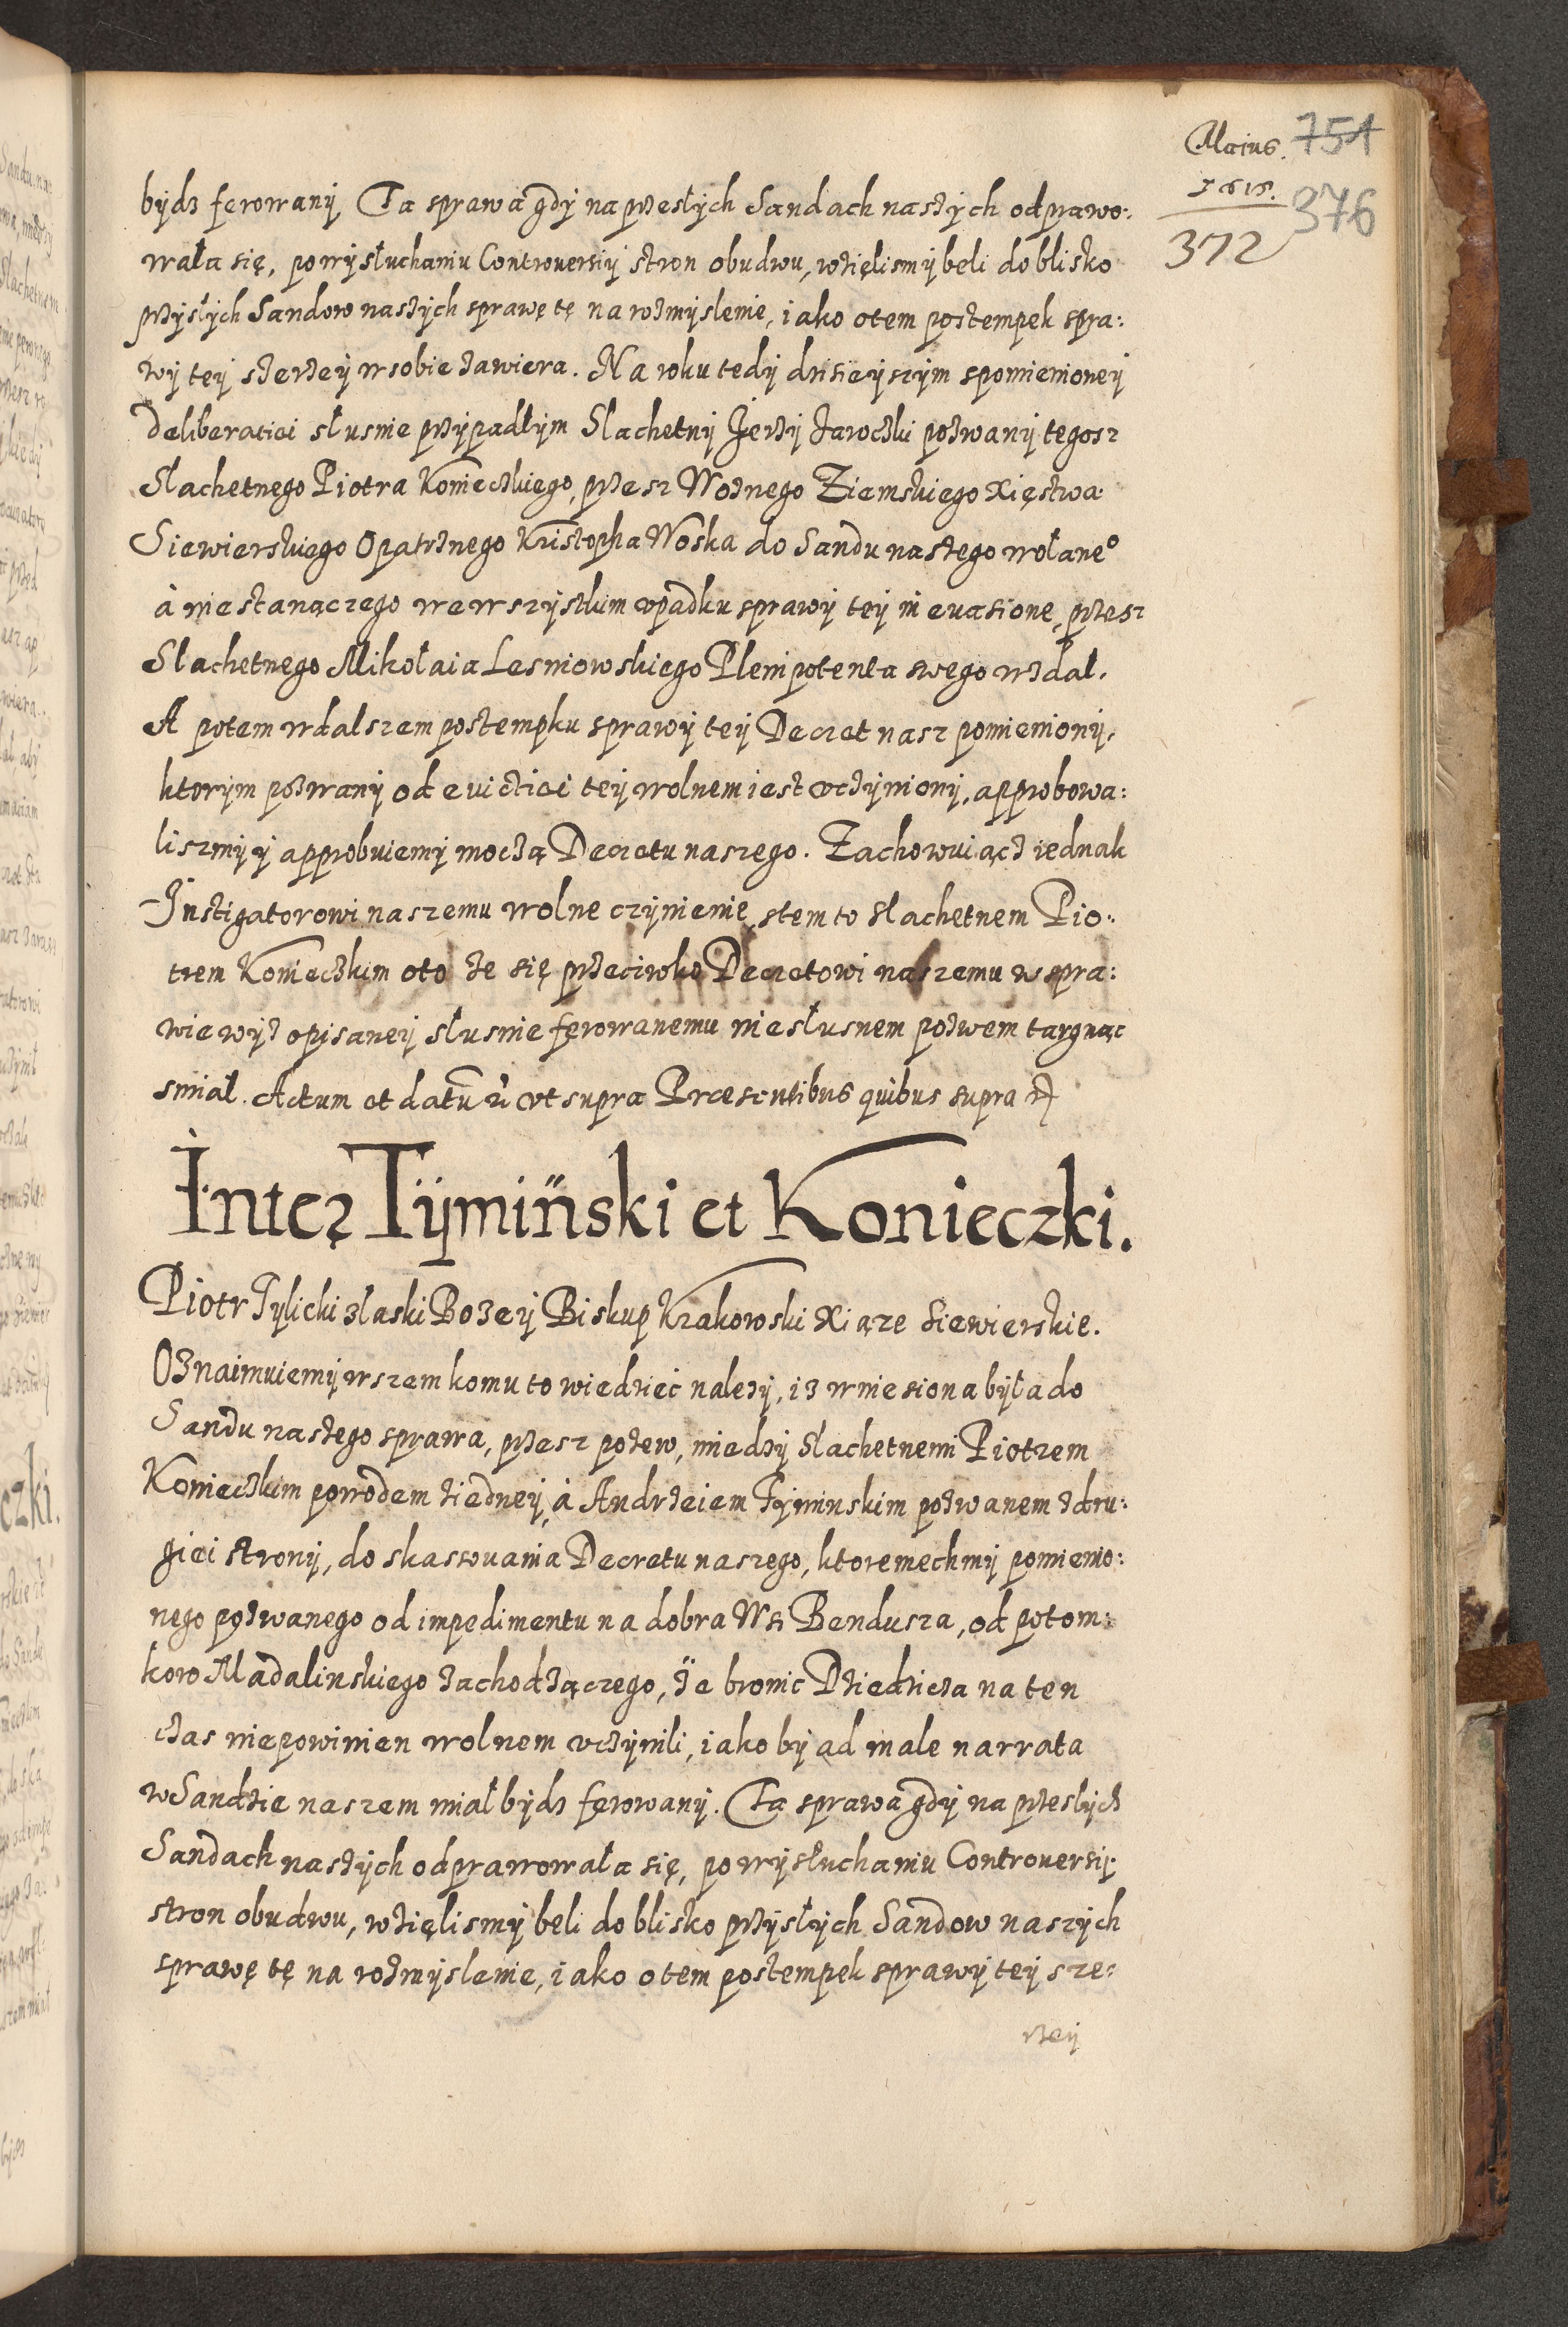 Maius. 751
1615. 376
372
bydz ferowany Ta sprawa gdy na przeszłych Sandach naszych odprawo:
wała się, po wysłuchaniu Controuersiy stron obudwu, wzięlismy beli do blisko
przyszłych Sandow naszych sprawę tę na rozmyslenie, iako otem postempek spra:
wy tey szerzey w sobie zawiera. Na roku tedy dzisieyszym spomienioney
Deliberatiei słusnie przypadłym Slachetny Jerzy Jaroczki pozwany tegosz
Slachetnego Piotra Konieczkiego, przesz Woznego Ziemskiego Xięstwa
Siewierskiego Opatrznego Kristopha Woska do Sandu naszego wołane°
à niestanączego we wszystkim vpadku sprawy tey in euasione, przesz
Slachetnego Mikołaia Lesniowskiego Plenipotenta swego wzdał.
A potem w dalszem postempku sprawy tey Decret nasz pomieniony,
ktorym pozwany od euictiei tey wolnem iest vczyniony, approbowa:
liszmy y approbuiemy moczą Decretu naszego. Zachowuiącz iednak
Instigatorowi naszemu wolne czynienie, stem to slachetnem Pio:
trem Konieczkim oto że się przeciwko Decretowi naszemu w spra:
wie wyż opisaney słusnie ferowanemu niesłusnem pozwem targnąc
smiał. Actum et datum ut supra Præsentibus quibus supra
Inter Tymiński et Konieczki.
Piotr Tylicki z łaski Bozey Biskup Krakowski Xiąze Siewierskie.
Oznaimuiemy wszem komu to wiedzieć nalezy, iz wniesiona była do
Sandu naszego sprawa, przesz pozew, miedzy Slachetnemi Piotrem
Konieczkim powodem ziedney, à Andrzeiem Tyminskim pozwanem zdru:
giei strony, do skassowania Decretu naszego, ktoremechmy pomienio:
nego pozwanego od impedimentu na dobra Wsi Bendusza, od potom:
kow Madalinskiego zachodzączego, że bronic Dziedzicza na ten
czas niepowinien wolnem vczynili, iako by ad male narrata
w Sandzie naszem miał bydz ferowany. Ta sprawa gdy na przeszłych
Sandach naszych odprawowała się, po wysłuchaniu Controuersiy
stron obudwu, wzięlismy beli do blisko przyszłych Sandow naszych
sprawę tę na rozmyslenie, iako otem postempek sprawy tey sze:
rzey